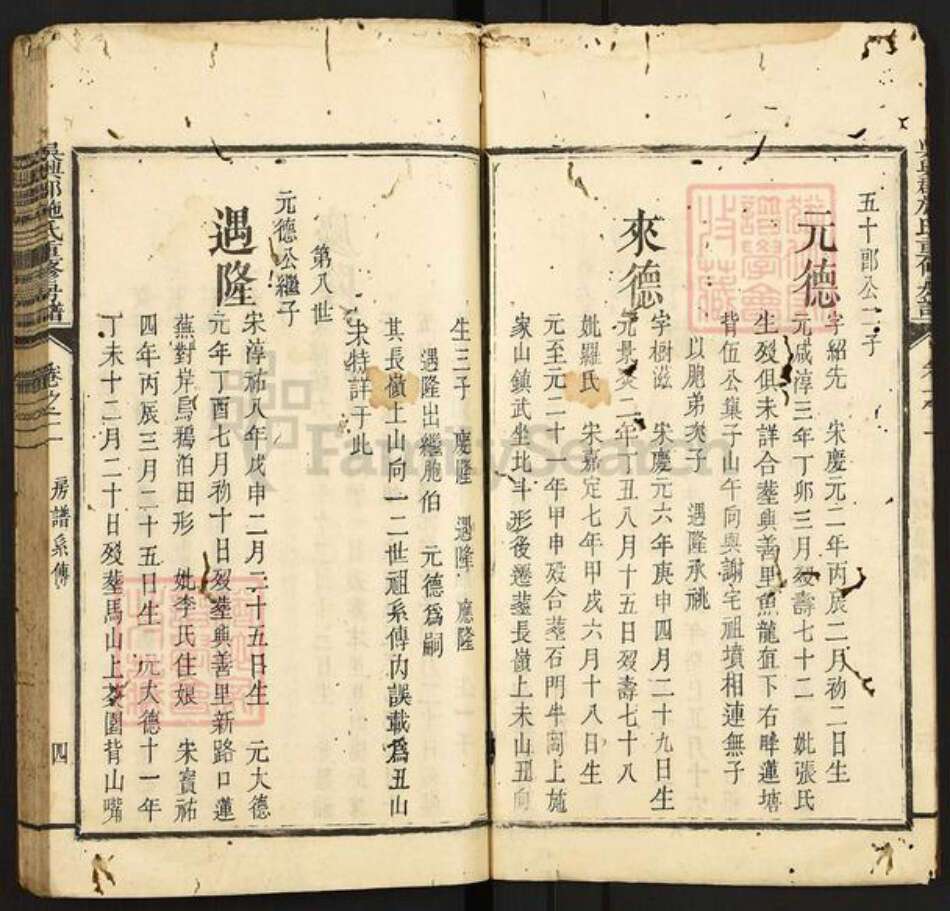 五十郎公二子
元德
字紹先 宋慶元二年丙辰二月初二日生
元咸淳三年丁卯三月歿壽七十二 妣張氏
生歿俱未詳合塟興善里魚龍 下右畔蓮塘
背伍公 子山午向與謝宅祖墳相連無子
以胞弟次子 遇隆承祧
來德
字樹滋 宋慶元六年庚申四月二十九日生
元景炎二年丁丑八月十五日歿壽七十八
妣羅氏 宋嘉定七年甲戌六月十八日生
元至元二十一年甲申歿合塟石門牛 上施
家山鎮武坐北斗形後遷塟長嶺上未山丑向
生三子 慶隆 遇隆 應隆
遇隆出繼胞伯 元德爲嗣
其長嶺上山向一二世祖系傳內誤載爲丑山
未特詳于此
第八世
元德公繼子
遇隆
宋淳祐八年戊申二月二十五日生 元大德
元年丁酉七月初十日歿塟興善里新路口蓮
蕉對岸烏鴉泊田形 妣李氏住娘 宋寶祐
四年丙辰三月二十五日生 元大德十一年
丁未十二月二十日歿塟馬山上茶園背山嘴
吳興郡施氏重修房譜
卷之二
房譜系傳
四
FamilySearch